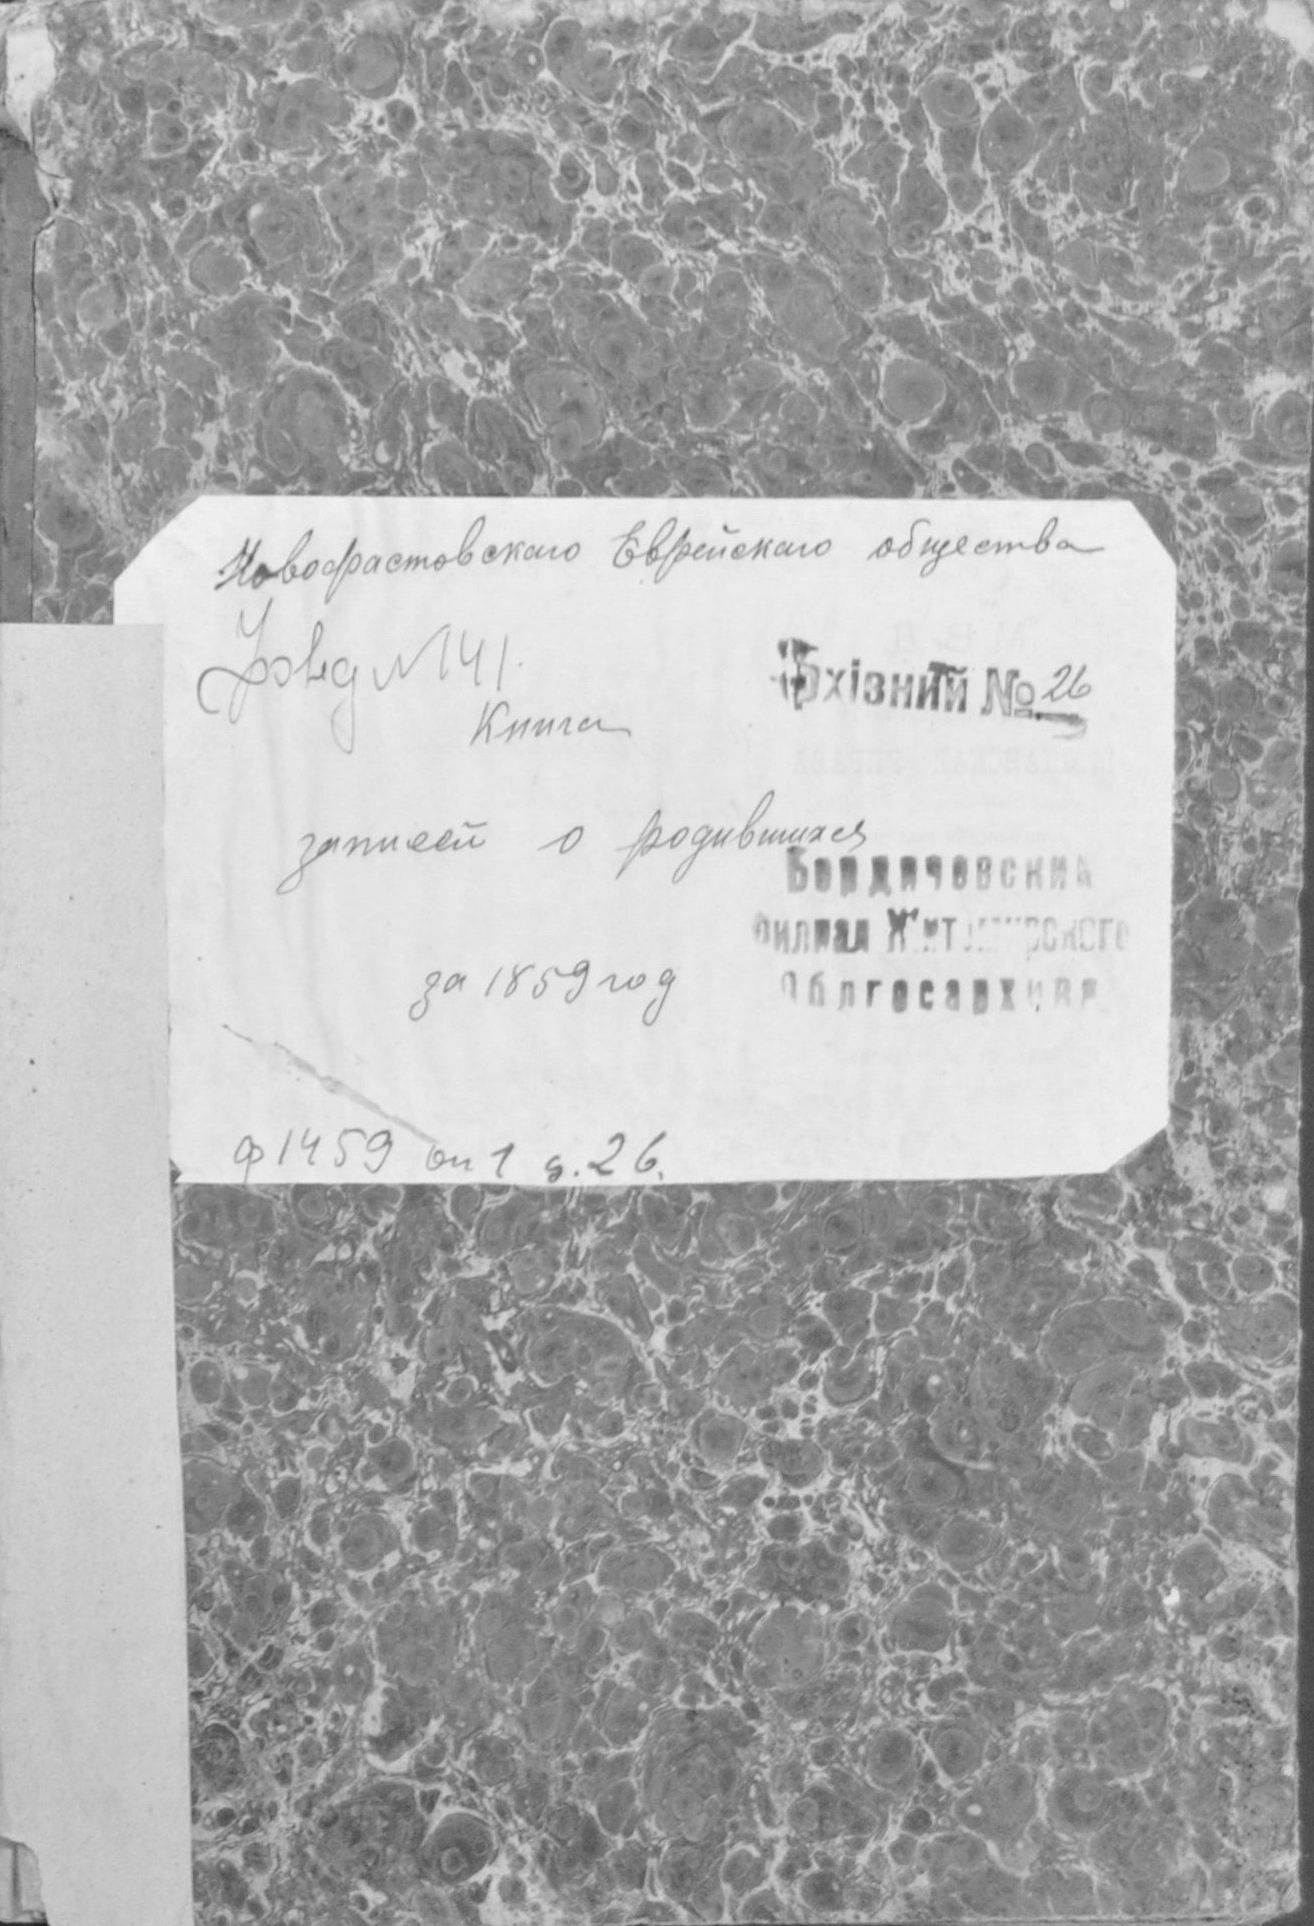 Новофастовскаго Еврейскаго общества
№ 141.
Архівний № 26
Книга
записей о родившихся
Бердичевский
филиал Житомирского
Облгосархива
за 1859 год
ф 1459 оп 1 д. 26.